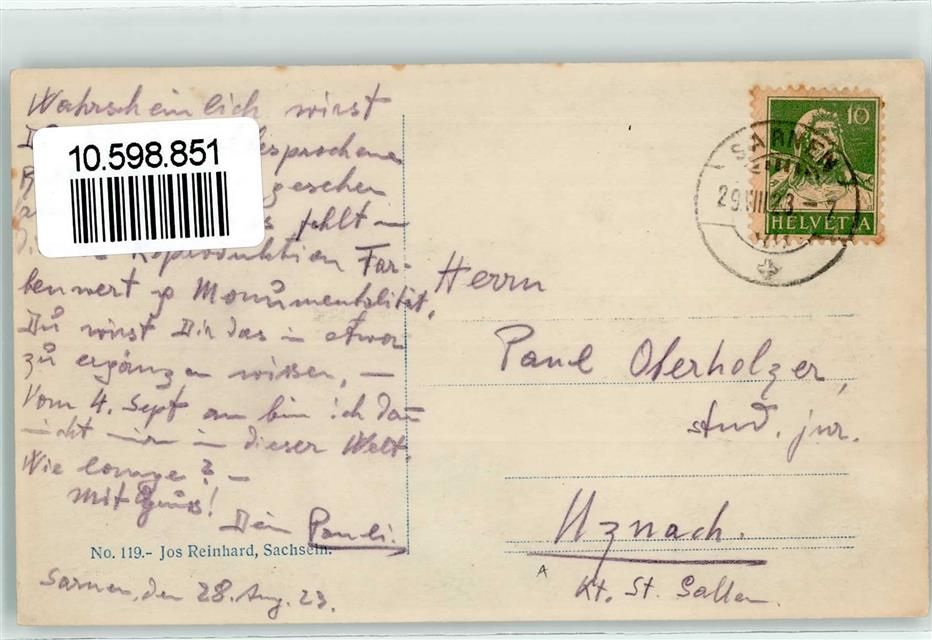 Wahrscheinlich wirst
10.598.851
sprochene
gesehen
fehlt in
Reproduktion Far-
benwert & Monumentalität.
Du wirst Dir das in etwas
zu ergänzen wissen, —
Vom 4. Sept an bin ich dann
nicht mir in dieser Welt.
Wie lange? —
Mit Gruss!
Dein Pauli.
No. 119.- Jos Reinhard, Sachseln.
Sarnen, den 28. Aug. 23.
10
HELVETIA
SARNEN
29.VIII.23-7
Herrn
Paul Oberholzer,
stud. jur.
Uznach.
Kt. St. Gallen.